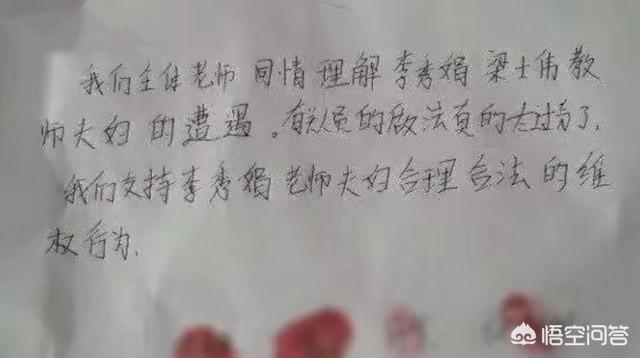 我们全体老师同情理解李秀娟梁士伟教
师夫妇的遭遇。有关人员的做法真的太过分了,
我们支持李秀娟老师夫妇合理合法的维
权行为.
悟空问答